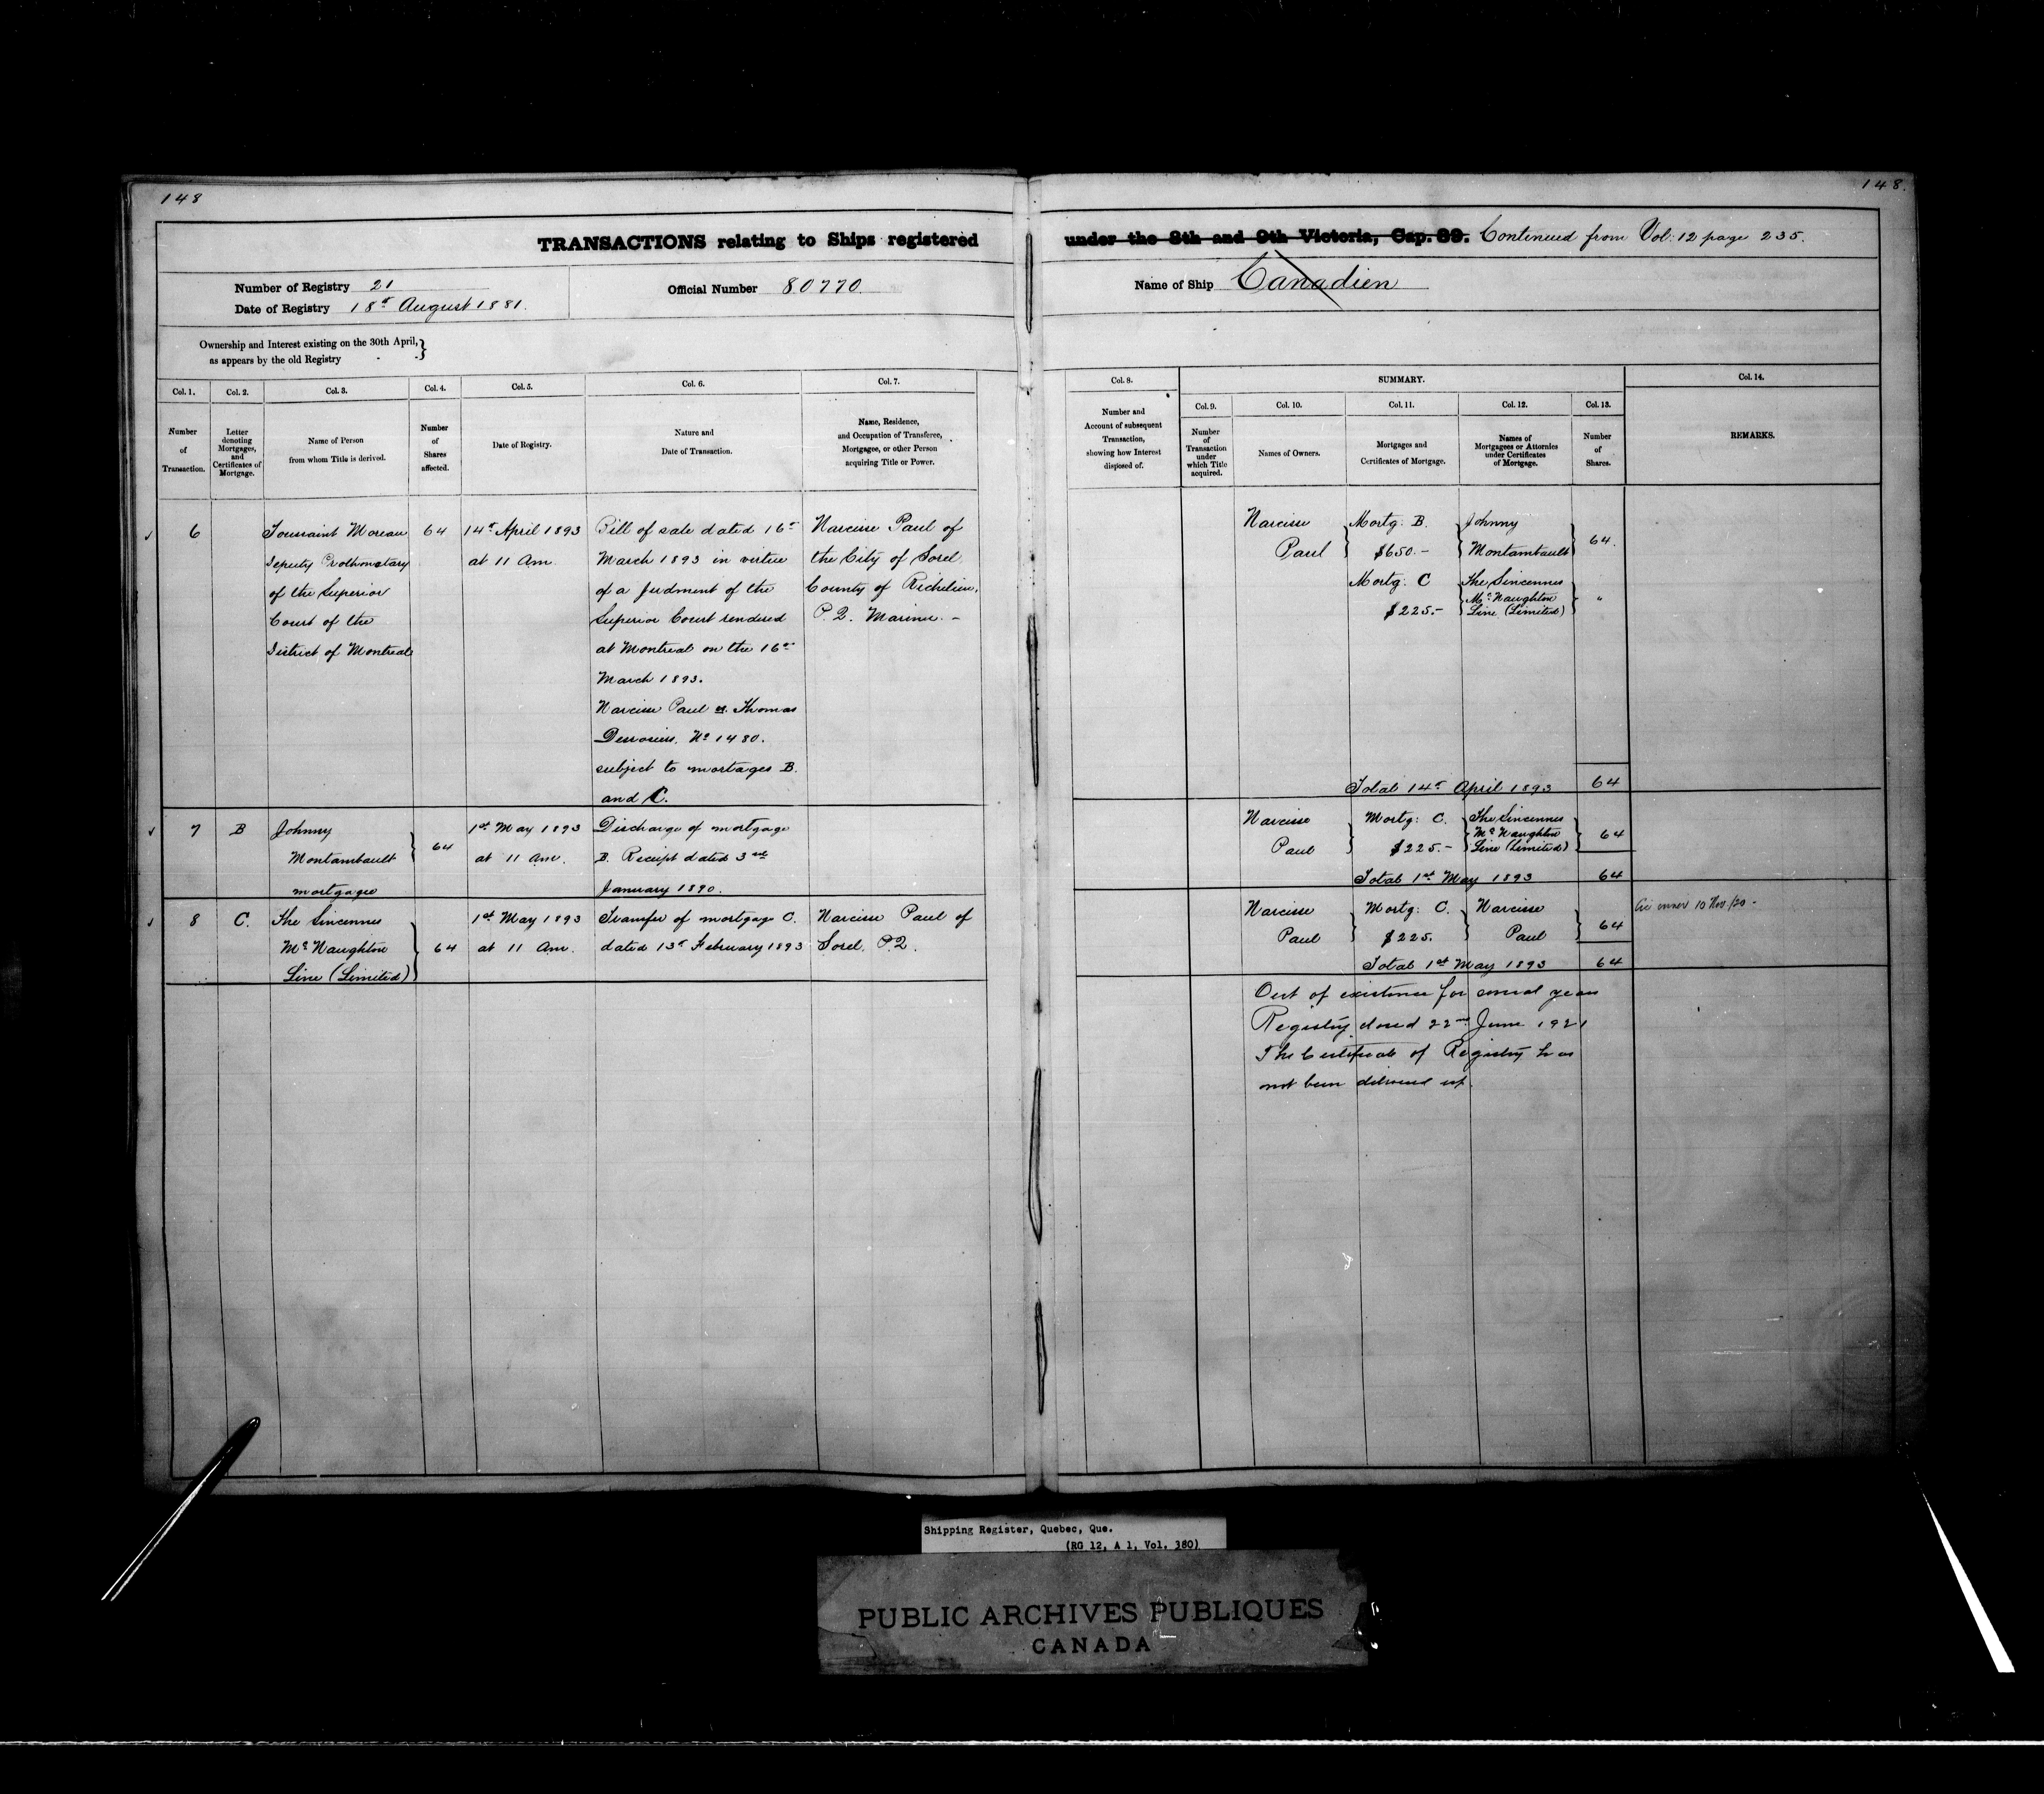 148
148.
TRANSACTIONS relating to Ships registered
under the 8th and 9th Victoria, Cap. 89. Continued from Vol: 12 page 235.
Number of Registry 21
Date of Registry 18th August 1881.
Official Number 80770.
Name of Ship Canadien
Ownership and Interest existing on the 30th April,
as appears by the old Registry
Col. 1.
Number
of
Transaction.
Col. 2.
Letter
denoting
Mortgages,
and
Certificates of
Mortgage.
Col. 3.
Name of Person
from whom Title is derived.
Col. 4.
Number
of
Shares
affected.
Col. 5.
Date of Registry.
Col. 6.
Nature and
Date of Transaction.
Col. 7.
Name, Residence,
and Occupation of Transferee,
Mortgagee, or other Person
acquiring Title or Power.
Col. 8.
Number and
Account of subsequent
Transaction,
showing how Interest
disposed of.
SUMMARY.
Col. 9.
Number
of
Transaction
under
which Title
acquired.
Col. 10.
Names of Owners.
Col. 11.
Mortgages and
Certificates of Mortgage.
Col. 12.
Names of
Mortgagees or Attornies
under Certificates
of Mortgage.
Col. 13.
Number
of
Shares.
Col. 14.
REMARKS.
6
Toussaint Moreau
Deputy Prothonotary
of the Superior
Court of the
District of Montreal
64
14th April 1893
at 11 Am.
Bill of sale dated 16th
March 1893 in virtue
of a Judment of the
Superior Court rendered
at Montreal on the 16th
March 1893.
Narcisse Paul vs. Thomas
No 1480.
subject to mortages B.
and C.
Narcisse Paul of
the City of Sorel
County of Richelieu,
P. Q. Mariner. –
Narcisse
Paul
Mortg: B.
$650.–
Johnny
Montambault
64.
Mortg: C
$225.–
The Sincennes
Mc Naughton
Line (Limited)
"
Total 14th April 1893
64
7
B
Johnny
Montambault
mortgagee
64
1st May 1893
at 11 am.
Discharge of mortgage
B. Receipt dated 3rd
January 1890.
Narcisse
Paul
Mortg: C.
$225.–
The Sincennes
Mc Naughton
Line (Limited)
64
Total 1st May 1893
64
8
C.
The Sincennes
Mc Naughton
Line (Limited)
64
1st May 1893
at 11 Am.
Transfer of mortgage C.
dated 13th February 1893
Narcisse Paul of
Sorel. P.Q.
Narcisse
Paul
Mortg: C.
$225.
Narcisse
Paul
64
Total 1st May 1893
64
owner 10 Nov/20 -
Out of existence for several years
Registry closed 22nd June 1921
The Certificate of Registry has
not been delivered up.
Shipping Register, Quebec, Que.
(RG 12, A 1, Vol. 380)
PUBLIC ARCHIVES PUBLIQUES
CANADA